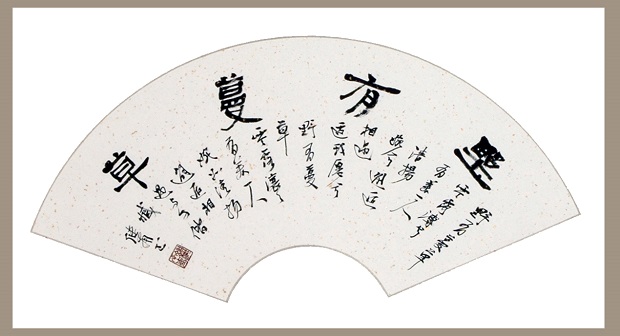 有蔓草
野有蔓草
零露漙兮
有美一人
清揚
婉兮邂逅
相遇
適我願兮
野有蔓
草
零露瀼瀼
有美一人
婉如清揚
邂逅相
遇與子偕
臧